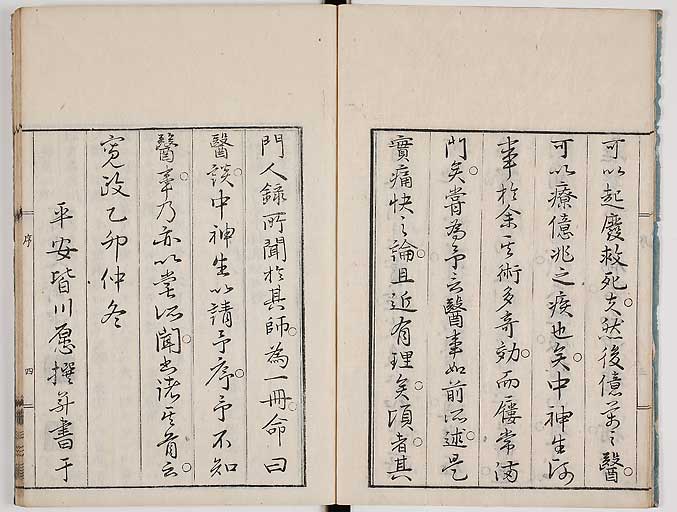 可以起廢救死夫然後億萬之醫
可以療億兆之疾也矣中神生
事於余其術多奇効而屨常滿
門矣嘗為予言醫事如前所述是
實痛快之論且近有理矣頃者其
門人錄所聞於其師為一冊命曰
醫談中神生以請予序予不知
醫事乃亦以嘗所聞書諸其首云
寬政乙卯仲冬
平安皆川愿撰并書于
序
四